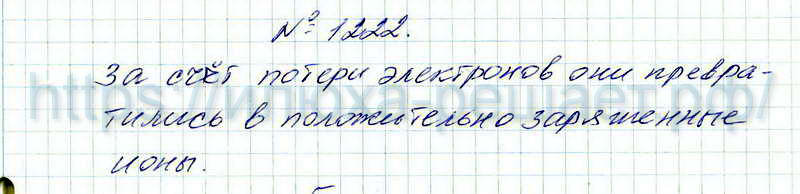 № 1222.
За счёт потери электронов они превра-
тились в положительно заряженные
ионы.